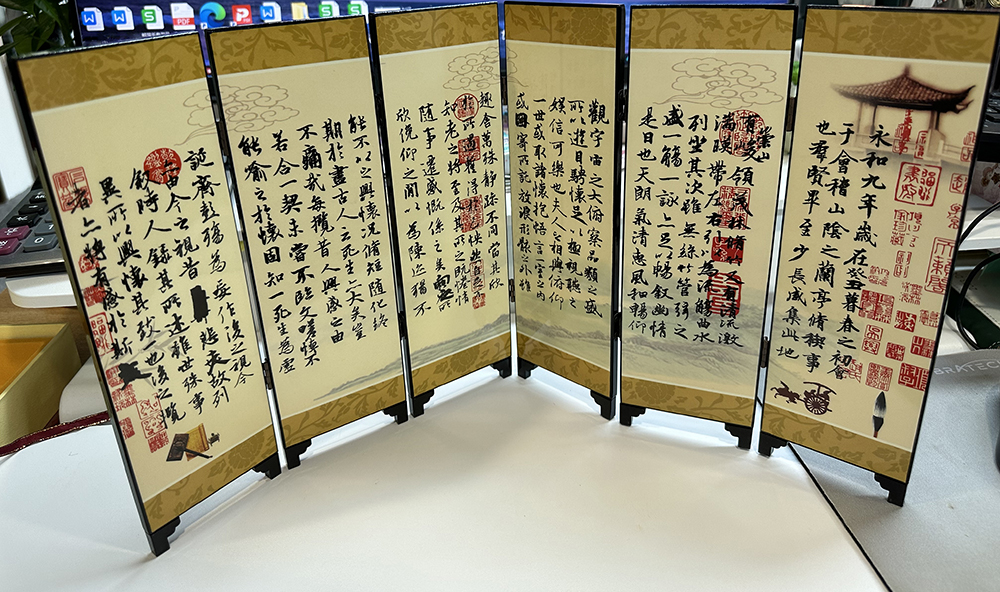 永和九年歲在癸丑暮春之初會
于會稽山陰之蘭亭脩禊事
也羣賢畢至少長咸集此地
有崇山
峻領茂林脩竹又有清流激
湍暎帶左右引以為流觴曲水
列坐其次雖無絲竹管弦之
盛一觴一詠亦足以暢敘幽情
是日也天朗氣清惠風和暢仰
觀宇宙之大俯察品類之盛
所以遊目騁懷足以極視聽之
娛信可樂也夫人之相與俯仰
一世或取諸懷抱悟言一室之內
或因寄所託放浪形骸之外雖
趣舍萬殊靜躁不同當其欣
於所遇暫得於己怏然自足不
知老之將至及其所之既惓情
隨事遷感慨係之矣向之所
欣俛仰之間以為陳迹猶不
能不以之興懷況脩短隨化終
期於盡古人云死生亦大矣豈
不痛哉每攬昔人興感之由
若合一契未嘗不臨文嗟悼不
能喻之於懷固知一死生為虛
誕齊彭殤為妄作後之視今
亦由今之視昔悲夫故列
敘時人錄其所述雖世殊事
異所以興懷其致一也後之覽
者亦將有感於斯文
PDF